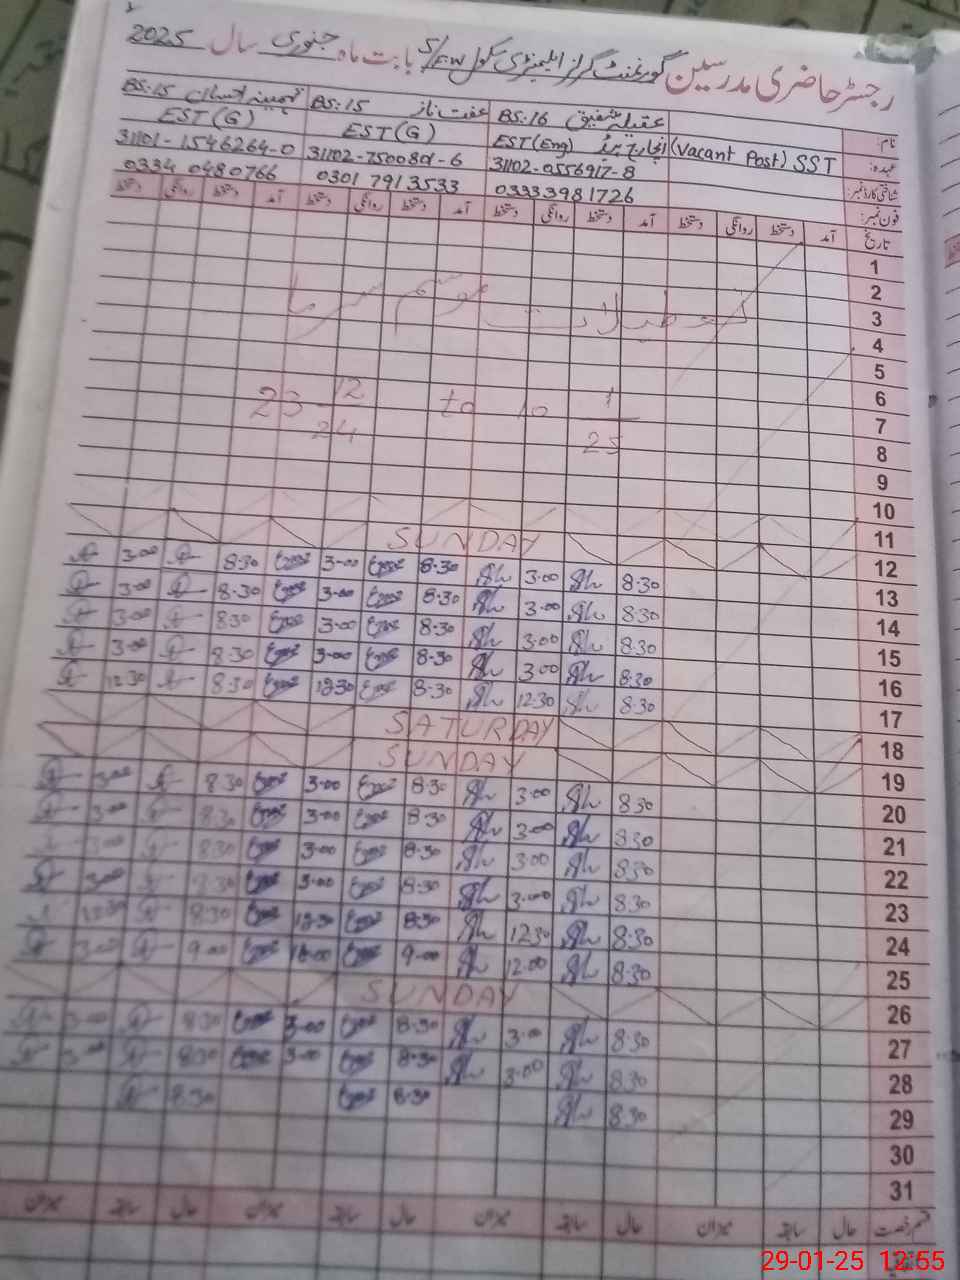 رجسٹر حاضری مدرسین گورنمنٹ گرلز ایلیمنٹری سکول 5/FW بابت ماہ جنوری سال 2025
نام: عقیلہ شفیق BS:16 عفت ناز BS:15 BS:15
عہدہ: (Vacant Post) SST EST(Eng) انچارج EST(G) EST(G)
شناختی کارڈ نمبر: 31102-0556917-8 31102-7500801-6 31101-1546264-0
فون نمبر: 03333981726 0301 7913533 0334 0480766
تاریخ آمد دستخط روانگی دستخط آمد دستخط روانگی دستخط آمد دستخط روانگی دستخط آمد دستخط روانگی دستخط
1
2
3 تعطیلات موسم سرما
4
5
6
7 23 12/24 to 10 1/25
8
9
10
11
SUNDAY
12 8.30 3.00 8.30 3.00 8.30 3.00
13 8.30 3.00 8.30 3.00 8.30 3.00
14 8.30 3.00 8.30 3.00 8.30 3.00
15 8.30 3.00 8.30 3.00 8.30 3.00
16 8.30 12.30 8.30 12.30 8.30 12.30
17
SATURDAY
18
SUNDAY
19
20 8.30 3.00 8.30 3.00 8.30 3.00
21 8.30 3.00 8.30 3.00 8.30 3.00
22 8.30 3.00 8.30 3.00 8.30 3.00
23 8.30 3.00 8.30 3.00 8.30 3.00
24 8.30 12.30 8.30 12.30 8.30 12.30
25 8.30 12.00 9.00 9.00 3.00
SUNDAY
26
27 8.30 3.00 8.30 3.00 8.30 3.00
28 8.30 3.00 8.30 3.00 8.30 3.00
29 8.30 8.30 8.30
30
31
قسم رخصت حال سابقہ میزان حال سابقہ میزان حال سابقہ میزان حال سابقہ میزان
29-01-25 12:55